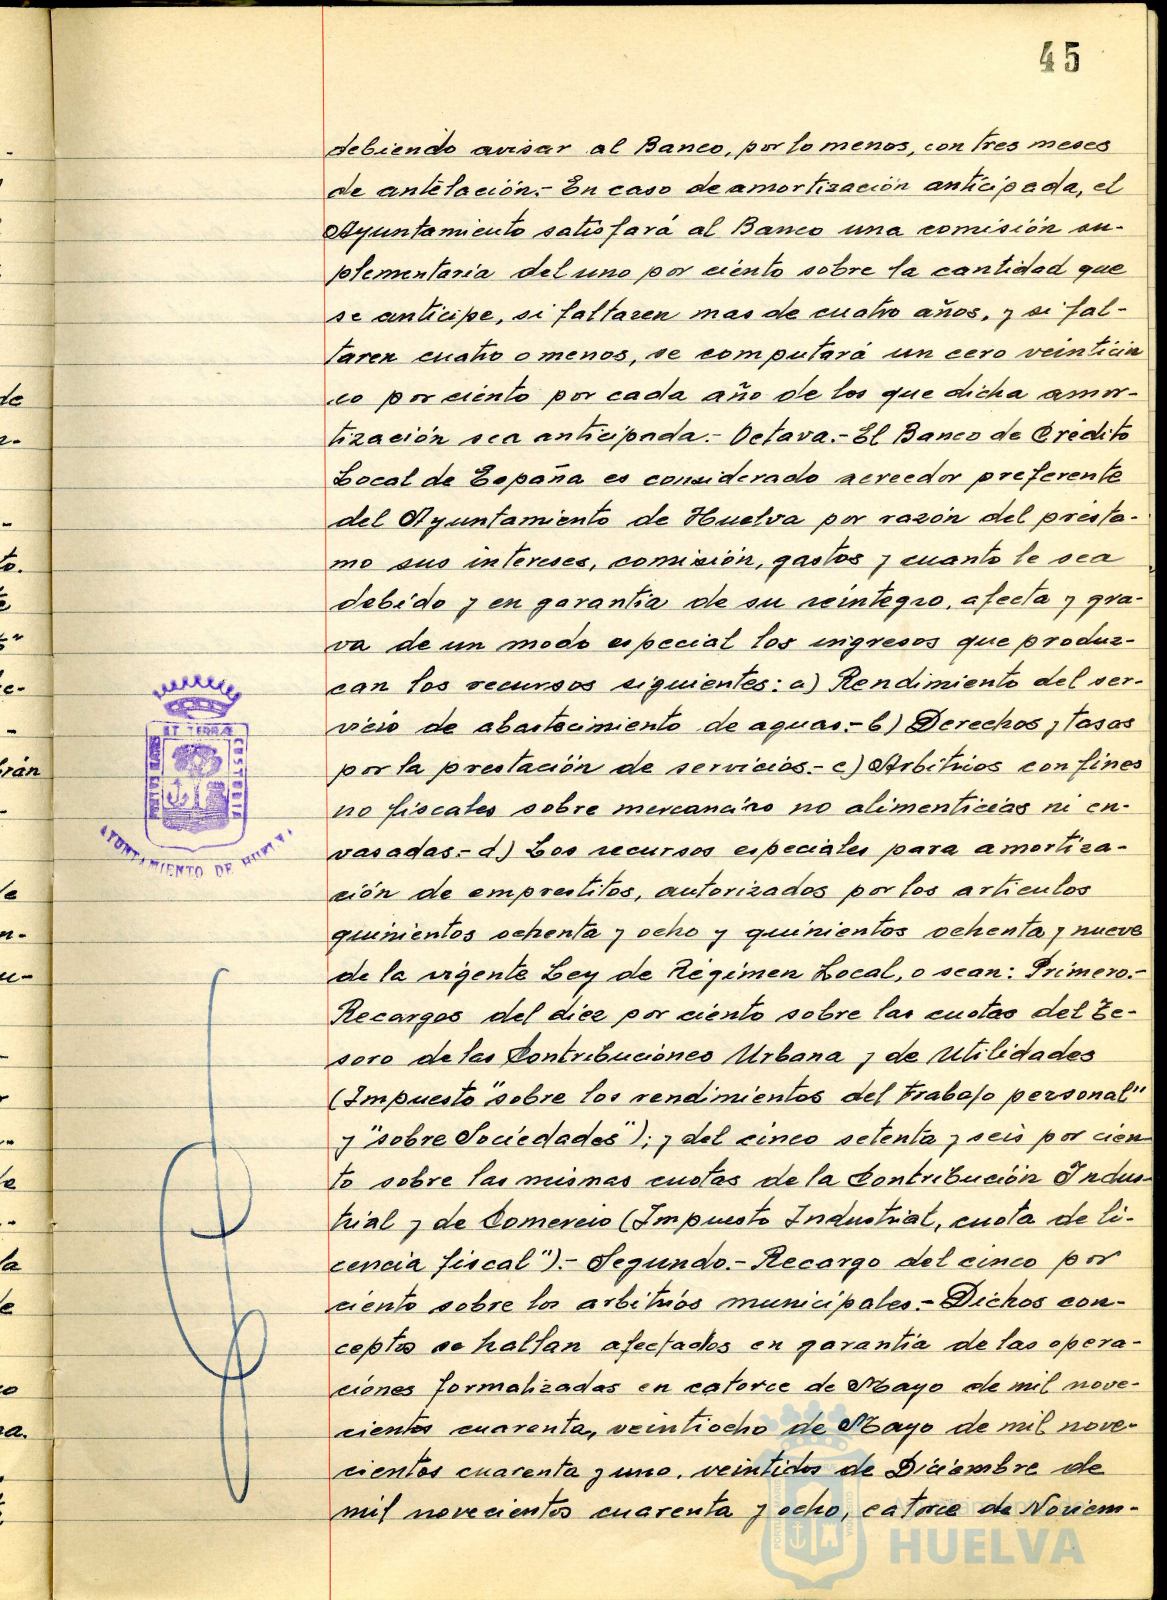 45
debiendo avisar al Banco, por lo menos, con tres meses
de antelación.- En caso de amortización anticipada, el
Ayuntamiento satisfará al Banco una comisión su-
plementaria del uno por ciento sobre la cantidad que
se anticipe, si faltaren mas de cuatro años, y si fal-
taren cuatro o menos, se computará un cero veinticin
co por ciento por cada año de los que dicha amor-
tización sea anticipada.- Octava.- El Banco de Crédito
Local de España es considerado acreedor preferente
del Ayuntamiento de Huelva por razón del présta-
mo sus intereses, comisión, gastos y cuanto le sea
debido y en garantía de su reintegro, afecta y gra-
va de un modo especial los ingresos que produz-
can los recursos siguientes: a) Rendimiento del ser-
vicio de abastecimiento de aguas.- b) Derechos y tasas
por la prestación de servicios.- c) Arbitrios con fines
no fiscales sobre mercancías no alimenticias ni en-
vasadas.- d) Los recursos especiales para amortiza-
ción de empréstitos, autorizados por los artículos
quinientos ochenta y ocho y quinientos ochenta y nueve
de la vigente Ley de Régimen Local, o sean: Primero.-
Recargos del diez por ciento sobre las cuotas del Te-
soro de las Contribuciones Urbana y de Utilidades
(Impuesto "sobre los rendimientos del trabajo personal"
y "sobre Sociedades"); y del cinco setenta y seis por cien
to sobre las mismas cuotas de la Contribución Indus-
trial y de Comercio (Impuesto Industrial, cuota de li-
cencia fiscal").- Segundo.- Recargo del cinco por
ciento sobre los arbitrios municipales.- Dichos con-
ceptos se hallan afectados en garantía de las opera-
ciones formalizadas en catorce de Mayo de mil nove-
cientos cuarenta, veintiocho de Mayo de mil nove-
cientos cuarenta y uno, veintidos de Diciembre de
mil novecientos cuarenta y ocho, catorce de Noviem-
AYUNTAMIENTO DE HUELVA
HUELVA